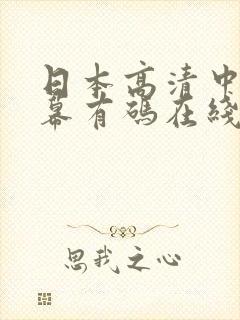 日本高清中
幕有碼在綫
思我之心